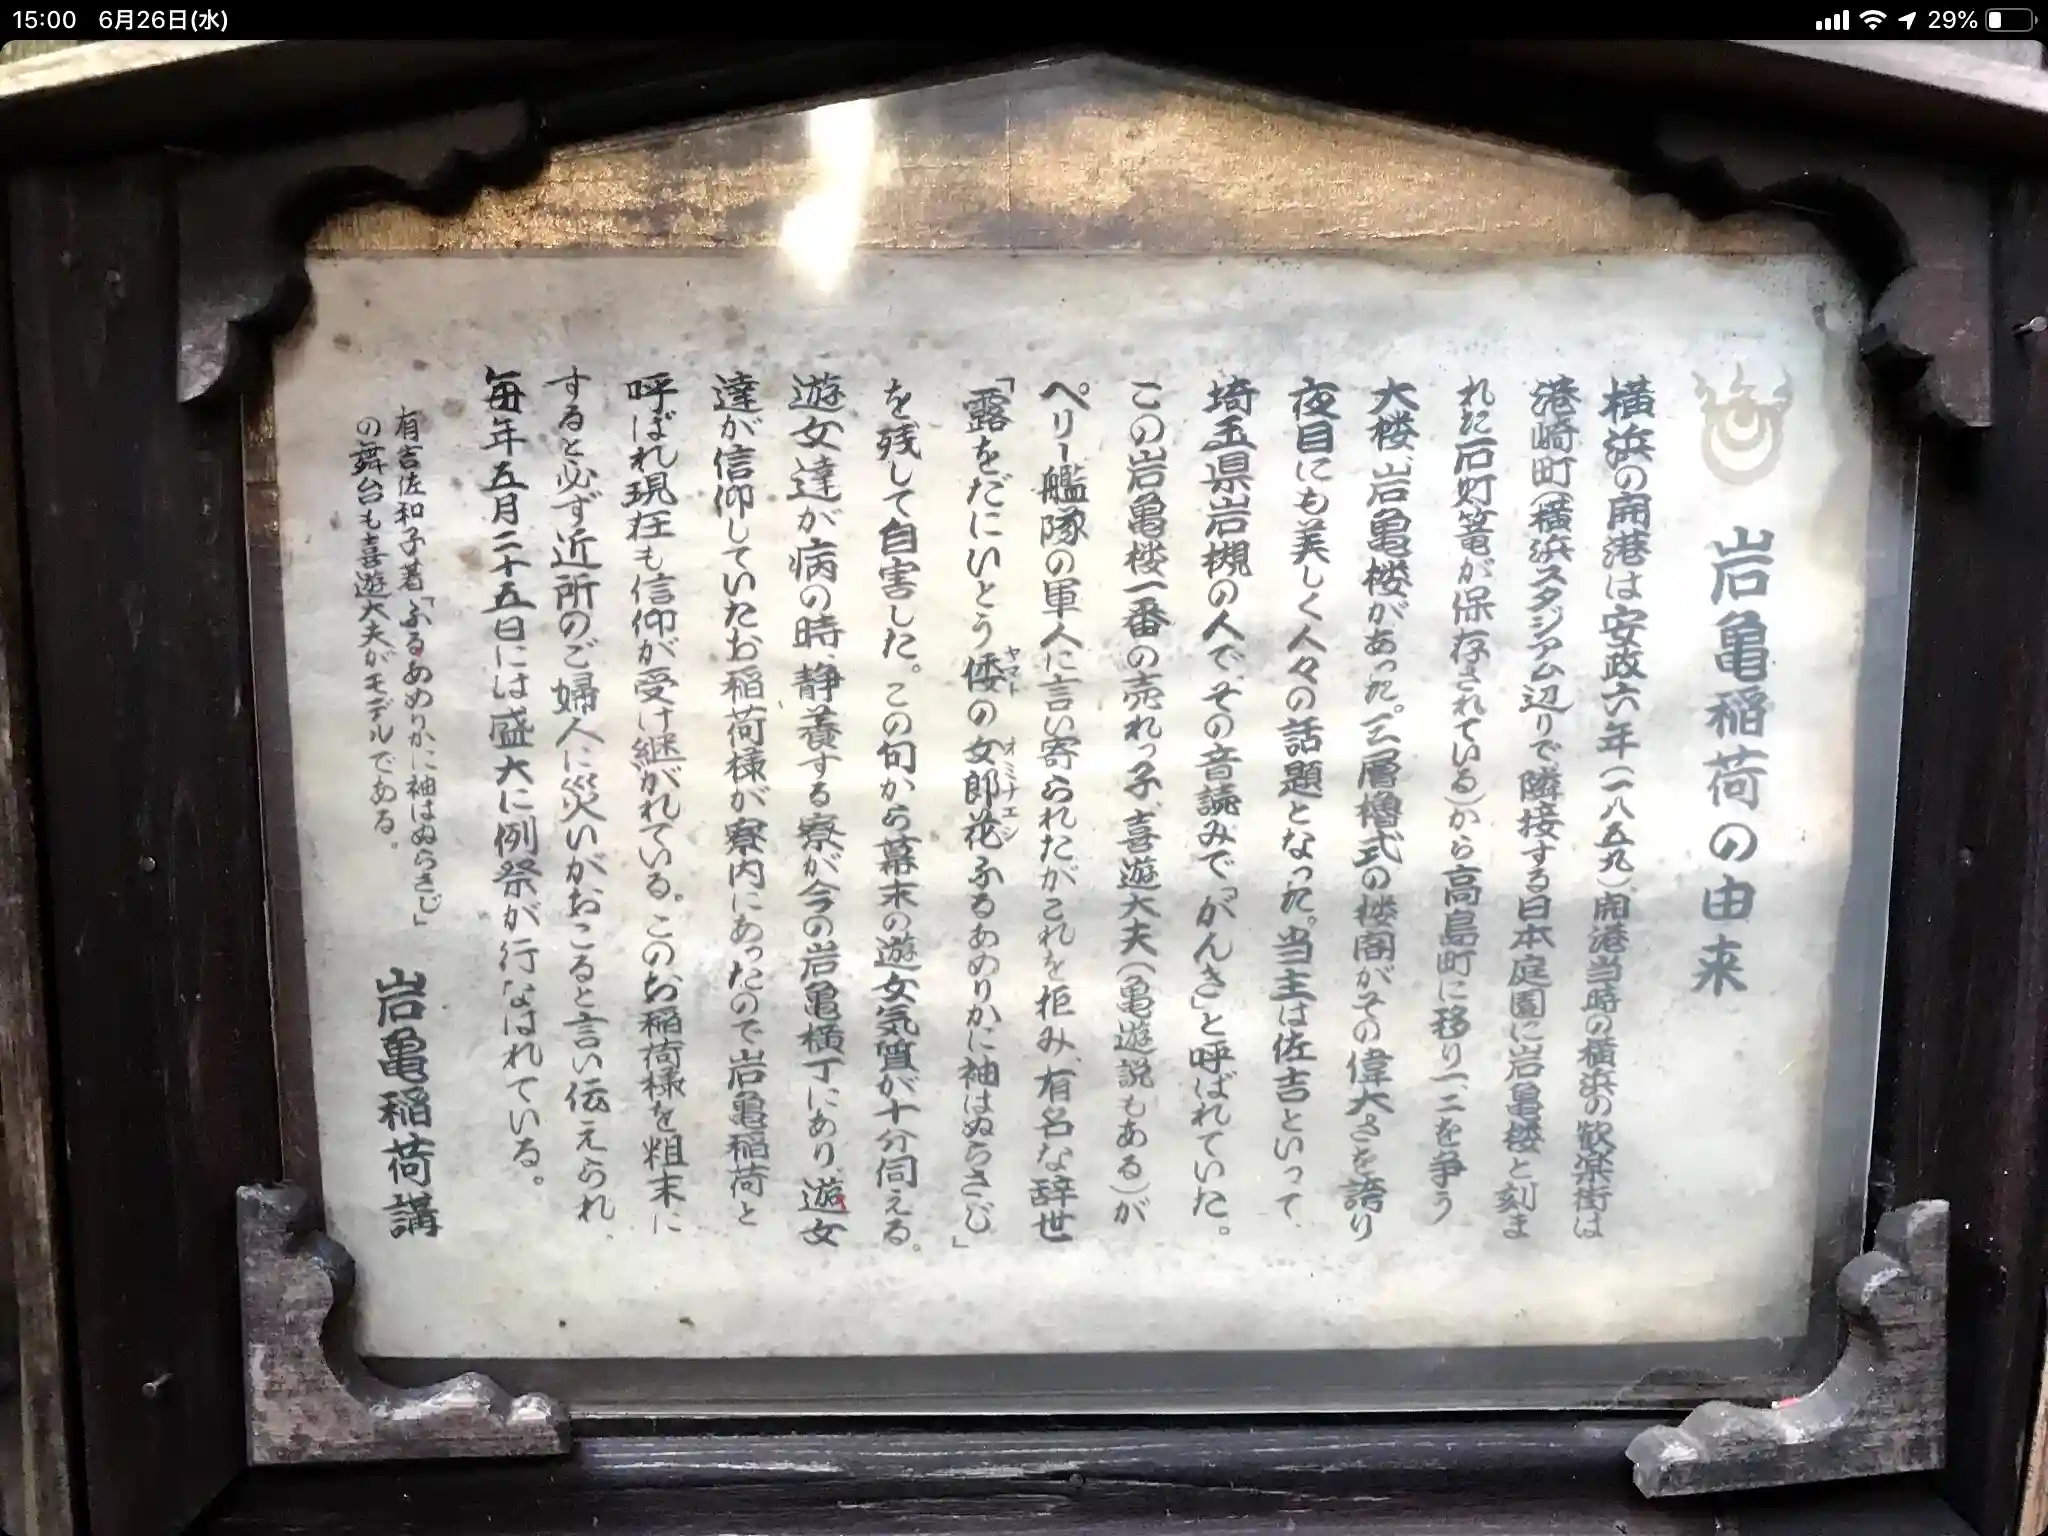 15:00 6月26日(水) 29%
岩亀稲荷の由来
横浜の開港は安政六年(一八五九)、開港当時の横浜の歓楽街は
港崎町(横浜スタジアム辺りで隣接する日本庭園に岩亀楼と刻ま
れた石灯篭が保存されている)から高島町に移り一、二を争う
大楼、岩亀楼があった。三層櫓式の楼閣がその偉大さを誇り
夜目にも美しく人々の話題となった。当主は佐吉といって、
埼玉県岩槻の人で、その音読みで「がんき」と呼ばれていた。
この岩亀楼一番の売れっ子、喜遊大夫(亀遊説もある)が
ペリー艦隊の軍人に言い寄られたがこれを拒み、有名な辞世
「露をだにいとう倭の女郎花ふるあめりかに袖はぬらさじ」
ヤマト オミナエシ
を残して自害した。この句から幕末の遊女気質が十分伺える。
遊女達が病の時、静養する寮が今の岩亀横丁にあり、遊女
達が信仰していたお稲荷様が寮内にあったので岩亀稲荷と
呼ばれ現在も信仰が受け継がれている。このお稲荷様を粗末に
すると必ず近所のご婦人に災いがおこると言い伝えられ、
毎年五月二十五日には盛大に例祭が行なはれている。
有吉佐和子著「ふるあめりかに袖はぬらさじ」
の舞台も喜遊大夫がモデルである。
岩亀稲荷講